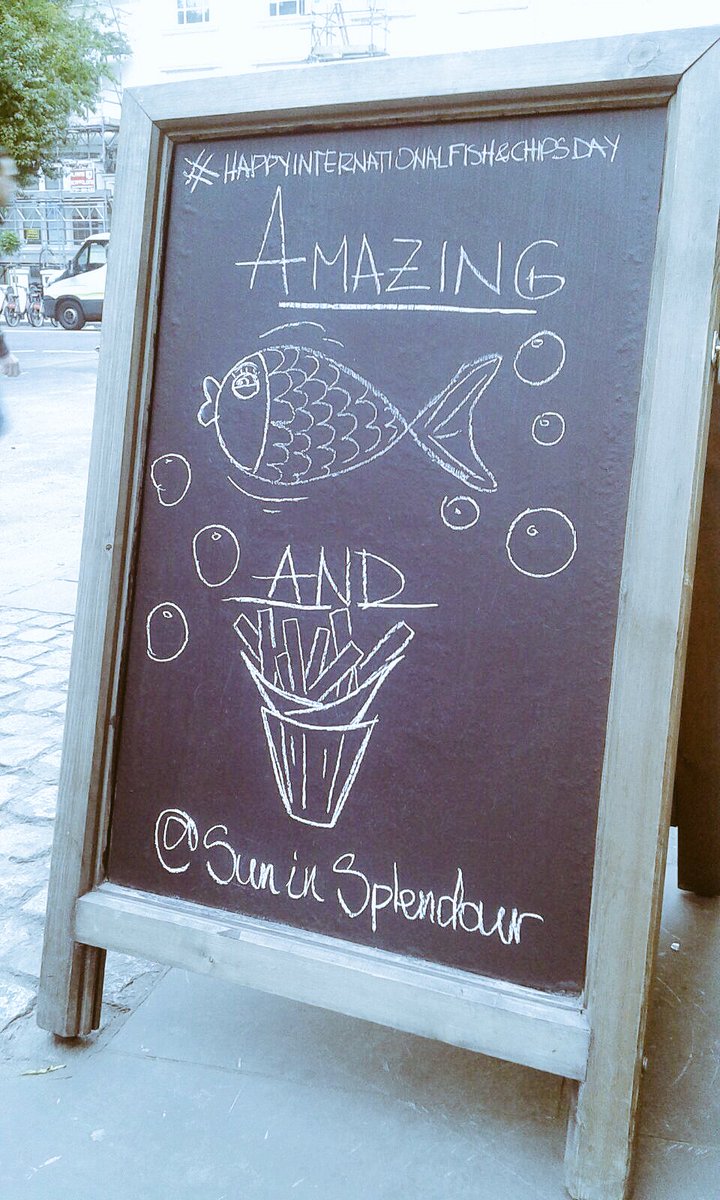 #HAPPYINTERNATIONALFISH&CHIPSDAY
AMAZING
AND
@Sun in Splendour